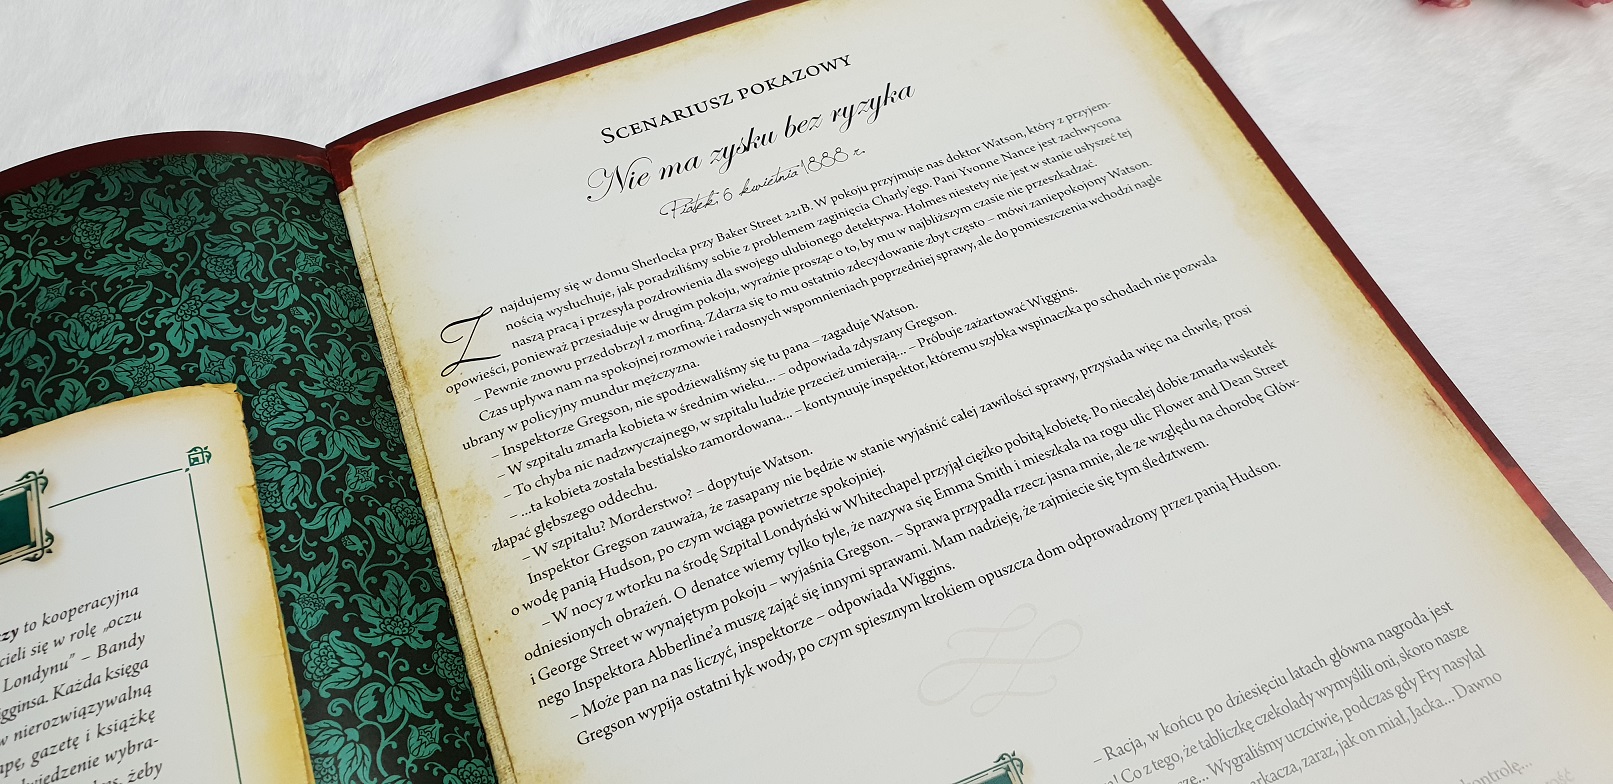 zy to kooperacyjna
cieli się w rolę „oczu
Londynu” – Bandy
igginsa. Każda księga
w nierozwiązywalną
apę, gazetę i książkę
wiedzenie wybra-
żeby
SCENARIUSZ POKAZOWY
Nie ma zysku bez ryzyka
Piątek, 6 kwietnia 1888 r.
Znajdujemy się w domu Sherlocka przy Baker Street 221B. W pokoju przyjmuje nas doktor Watson, który z przyjem-
nością wysłuchuje, jak poradziliśmy sobie z problemem zaginięcia Charly'ego. Pani Yvonne Nance jest zachwycona
naszą pracą i przesyła pozdrowienia dla swojego ulubionego detektywa. Holmes niestety nie jest w stanie usłyszeć tej
opowieści, ponieważ przesiaduje w drugim pokoju, wyraźnie prosząc o to, by mu w najbliższym czasie nie przeszkadzać.
– Pewnie znowu przedobrzył z morfiną. Zdarza się to mu ostatnio zdecydowanie zbyt często – mówi zaniepokojony Watson.
Czas upływa nam na spokojnej rozmowie i radosnych wspomnieniach poprzedniej sprawy, ale do pomieszczenia wchodzi nagle
ubrany w policyjny mundur mężczyzna.
– Inspektorze Gregson, nie spodziewaliśmy się tu pana – zagaduje Watson.
– W szpitalu zmarła kobieta w średnim wieku... – odpowiada zdyszany Gregson.
– To chyba nic nadzwyczajnego, w szpitalu ludzie przecież umierają... – Próbuje zażartować Wiggins.
– ...ta kobieta została bestialsko zamordowana... – kontynuuje inspektor, któremu szybka wspinaczka po schodach nie pozwala
złapać głębszego oddechu.
– W szpitalu? Morderstwo? – dopytuje Watson.
Inspektor Gregson zauważa, że zasapany nie będzie w stanie wyjaśnić całej zawiłości sprawy, przysiada więc na chwilę, prosi
o wodę panią Hudson, po czym wciąga powietrze spokojniej.
– W nocy z wtorku na środę Szpital Londyński w Whitechapel przyjął ciężko pobitą kobietę. Po niecałej dobie zmarła wskutek
odniesionych obrażeń. O denatce wiemy tylko tyle, że nazywa się Emma Smith i mieszkała na rogu ulic Flower and Dean Street
i George Street w wynajętym pokoju – wyjaśnia Gregson. – Sprawa przypadła rzecz jasna mnie, ale ze względu na chorobę Głów-
nego Inspektora Abberline'a muszę zająć się innymi sprawami. Mam nadzieję, że zajmiecie się tym śledztwem.
– Może pan na nas liczyć, inspektorze – odpowiada Wiggins.
Gregson wypija ostatni łyk wody, po czym spiesznym krokiem opuszcza dom odprowadzony przez panią Hudson.
– Racja, w końcu po dziesięciu latach główna nagroda jest
! Co z tego, że tabliczkę czekolady wymyślili oni, skoro nasze
ze... Wygraliśmy uczciwie, podczas gdy Fry nasyłał
arkacza, zaraz, jak on miał, Jacka... Dawno
kontrolę...